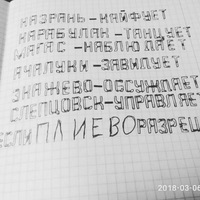 НАЗРАНЬ-КАЙФУЕТ
КАРАБУЛАК-ТАНЦУЕТ
МАГАС-НАБЛЮДАЕТ
АЧАЛУКИ-ЗАВИДУЕТ
ЭКАЖЕВО-ОБСУЖДАЕТ
СЛЕПЦОВСК-УПРАВЛЯЕТ
ЕСЛИ ПЛИЕВО РАЗРЕШ
2018-03-06